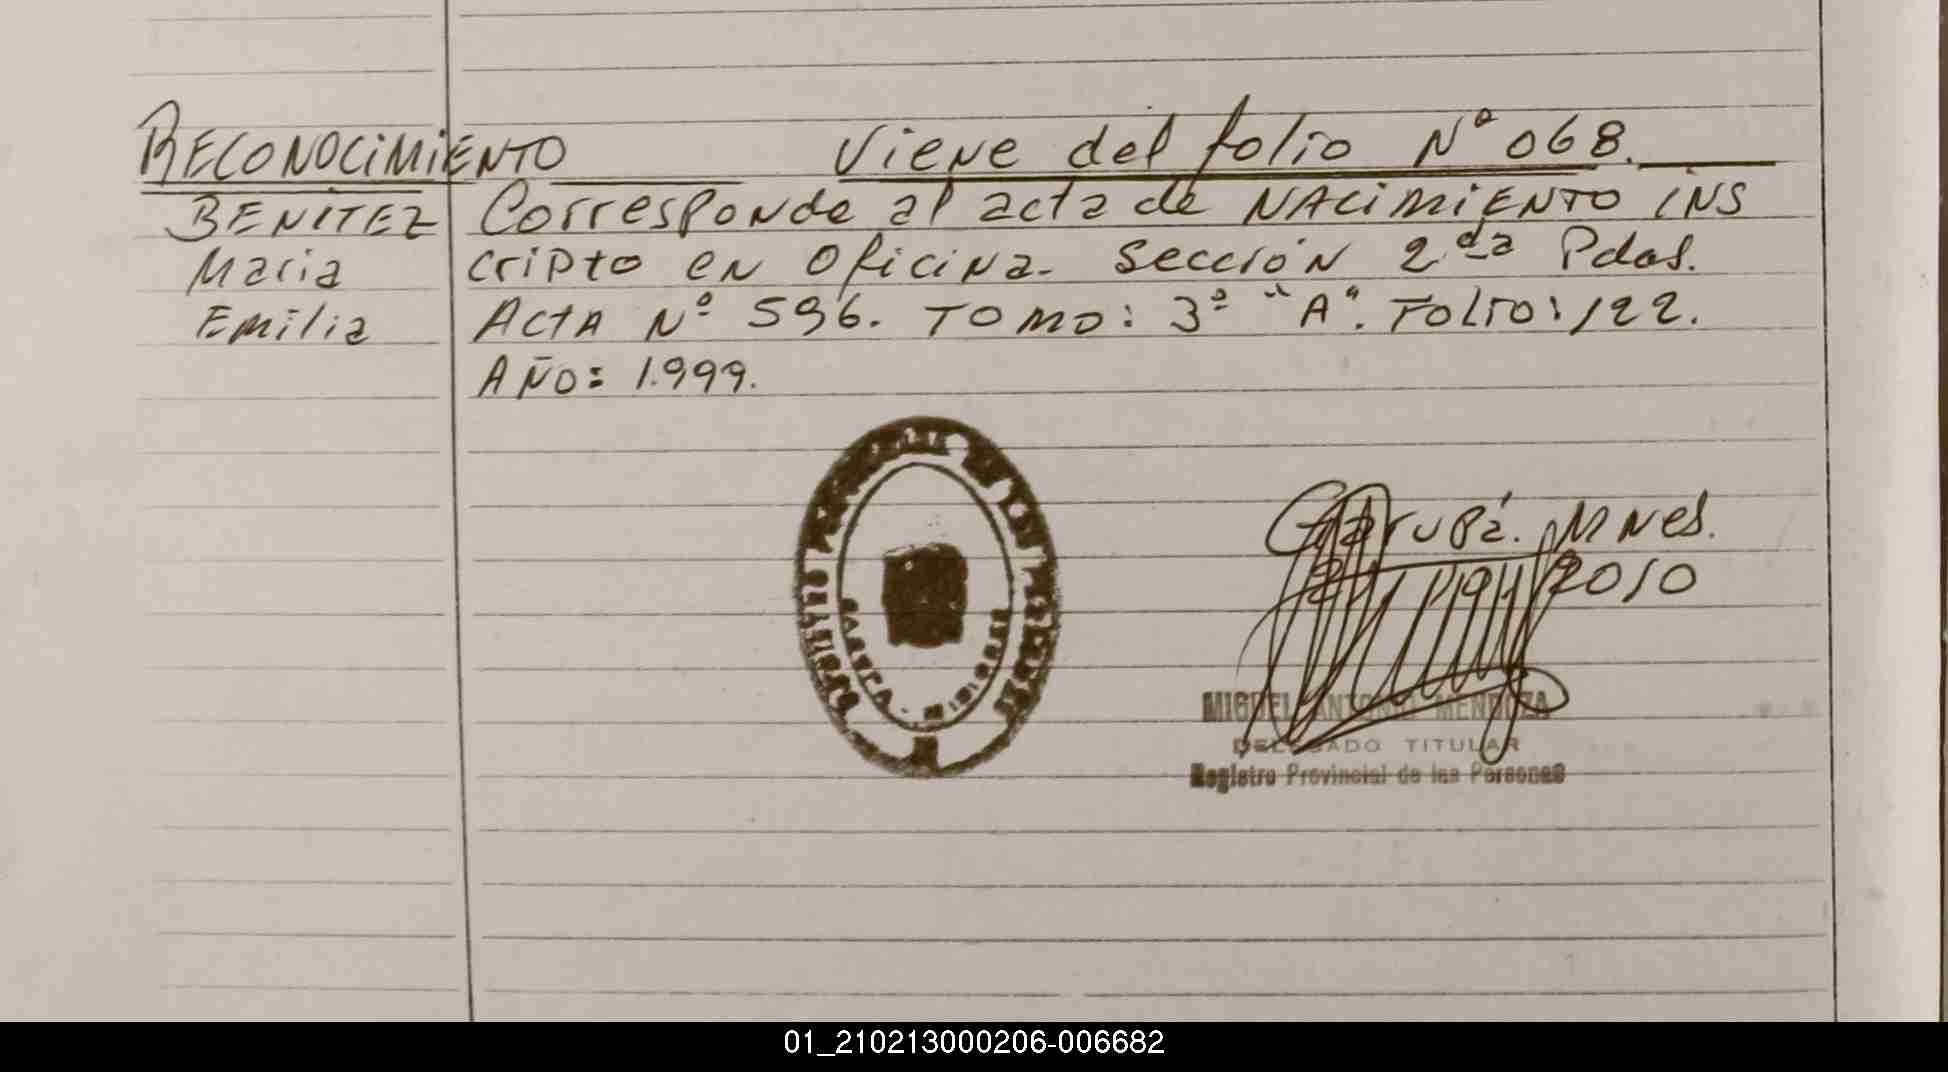 RECONOCIMIENTO Viene del folio Nº 068.
BENITEZ Corresponde al acta de NACIMIENTO INS
Maria cripto en Oficina. Sección 2da Pdas.
Emilia ACTA Nº 596. TOMO: 3º "A". FOLIO: 122.
AÑO: 1.999.
Garupá. Mnes.
2010
MIGUEL ANTONIO MENDOZA
DELEGADO TITULAR
Registro Provincial de las Personas
GARUPA - MISIONES
01_210213000206-006682